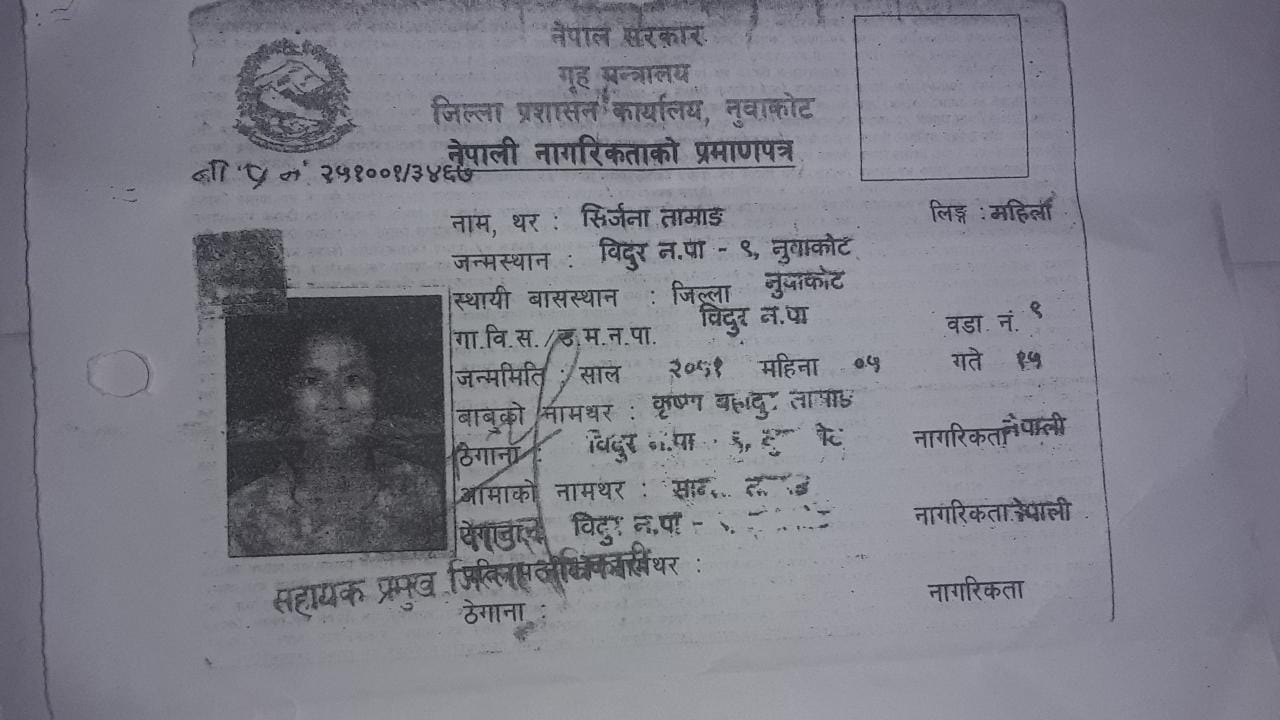 नेपाल सरकार
गृह मन्त्रालय
जिल्ला प्रशासन कार्यालय, नुवाकोट
नेपाली नागरिकताको प्रमाणपत्र
ना प्र नं. २५१००१/३४६७
नाम, थर : सिर्जना तामाङ लिङ्ग : महिला
जन्मस्थान : विदुर न.पा - ९, नुवाकोट
स्थायी बासस्थान : जिल्ला नुवाकोट
गा.वि.स./उ.म.न.पा. विदुर न.पा वडा नं. ९
जन्ममिति : साल २०५१ महिना ०५ गते १५
बाबुको नामथर : कृष्ण बहादुर तामाङ
ठेगाना : विदुर न.पा नागरिकता नेपाली
आमाको नामथर :
विदुर न.पा - नागरिकता नेपाली
सहायक प्रमुख जिल्ला अधिकारी थर :
ठेगाना : नागरिकता